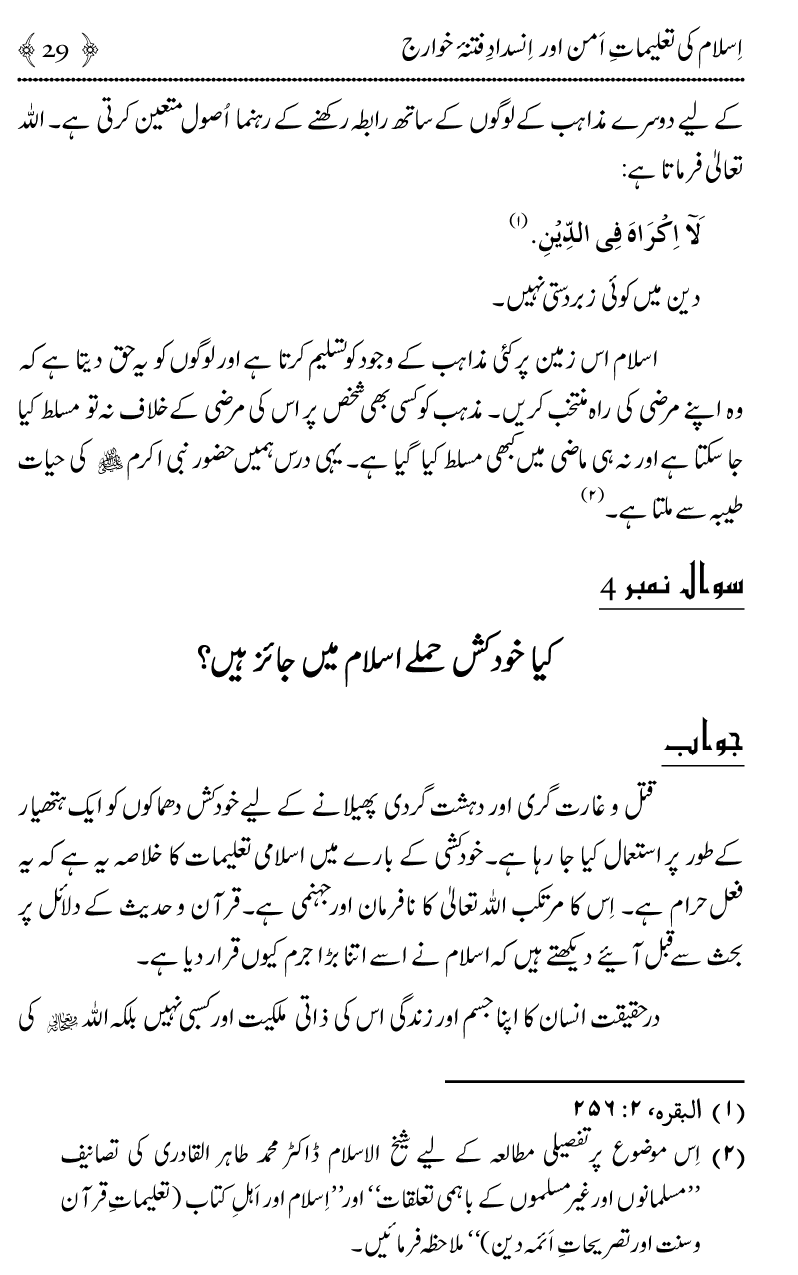 اِسلام کی تعلیماتِ اَمن اور اِنسدادِ فتنۂ خوارج ﴿ 29 ﴾
کے لیے دوسرے مذاہب کے لوگوں کے ساتھ رابطہ رکھنے کے رہنما اُصول متعین کرتی ہے۔ اللہ
تعالیٰ فرماتا ہے:
لَآ اِکْرَاہَ فِی الدِّیْنِ. (۱)
دین میں کوئی زبردستی نہیں۔
اسلام اس زمین پر کئی مذاہب کے وجود کو تسلیم کرتا ہے اور لوگوں کو یہ حق دیتا ہے کہ
وہ اپنے مرضی کی راہ منتخب کریں۔ مذہب کو کسی بھی شخص پر اس کی مرضی کے خلاف نہ تو مسلط کیا
جا سکتا ہے اور نہ ہی ماضی میں کبھی مسلط کیا گیا ہے۔ یہی درس ہمیں حضور نبی اکرم ﷺ کی حیات
طیبہ سے ملتا ہے۔(۲)
سوال نمبر 4
کیا خودکش حملے اسلام میں جائز ہیں؟
جواب
قتل و غارت گری اور دہشت گردی پھیلانے کے لیے خودکش دھماکوں کو ایک ہتھیار
کے طور پر استعمال کیا جا رہا ہے۔ خودکشی کے بارے میں اسلامی تعلیمات کا خلاصہ یہ ہے کہ یہ
فعل حرام ہے۔ اِس کا مرتکب اللہ تعالیٰ کا نافرمان اور جہنمی ہے۔ قرآن و حدیث کے دلائل پر
بحث سے قبل آیئے دیکھتے ہیں کہ اسلام نے اسے اتنا بڑا جرم کیوں قرار دیا ہے۔
درحقیقت انسان کا اپنا جسم اور زندگی اس کی ذاتی ملکیت اور کسبی نہیں بلکہ اللہ کی
(۱) البقرہ، ۲: ۲۵۶
(۲) اِس موضوع پر تفصیلی مطالعہ کے لیے شیخ الاسلام ڈاکٹر محمد طاہر القادری کی تصانیف
’’مسلمانوں اور غیر مسلموں کے باہمی تعلقات‘‘ اور ’’اِسلام اور اَہلِ کتاب (تعلیماتِ قرآن
و سنت اور تصریحاتِ اَئمہ دین)‘‘ ملاحظہ فرمائیں۔